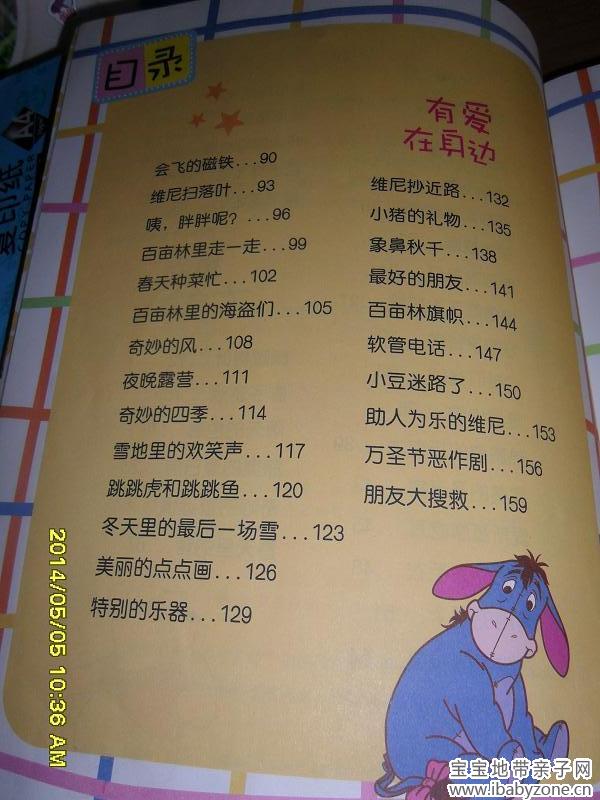 目录
会飞的磁铁...90
维尼扫落叶...93
咦，胖胖呢？...96
百亩林里走一走...99
春天种菜忙...102
百亩林里的海盗们...105
奇妙的风...108
夜晚露营...111
奇妙的四季...114
雪地里的欢笑声...117
跳跳虎和跳跳鱼...120
冬天里的最后一场雪...123
美丽的点点画...126
特别的乐器...129
有爱
在身边
维尼抄近路...132
小猪的礼物...135
象鼻秋千...138
最好的朋友...141
百亩林旗帜...144
软管电话...147
小豆迷路了...150
助人为乐的维尼...153
万圣节恶作剧...156
朋友大搜救...159
A4
复印纸
2014/05/05 10:36 AM
宝宝地带亲子网
www.ibabyzone.cn